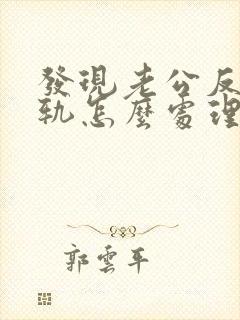 發現老公反
軌怎麼處理
郭雲平